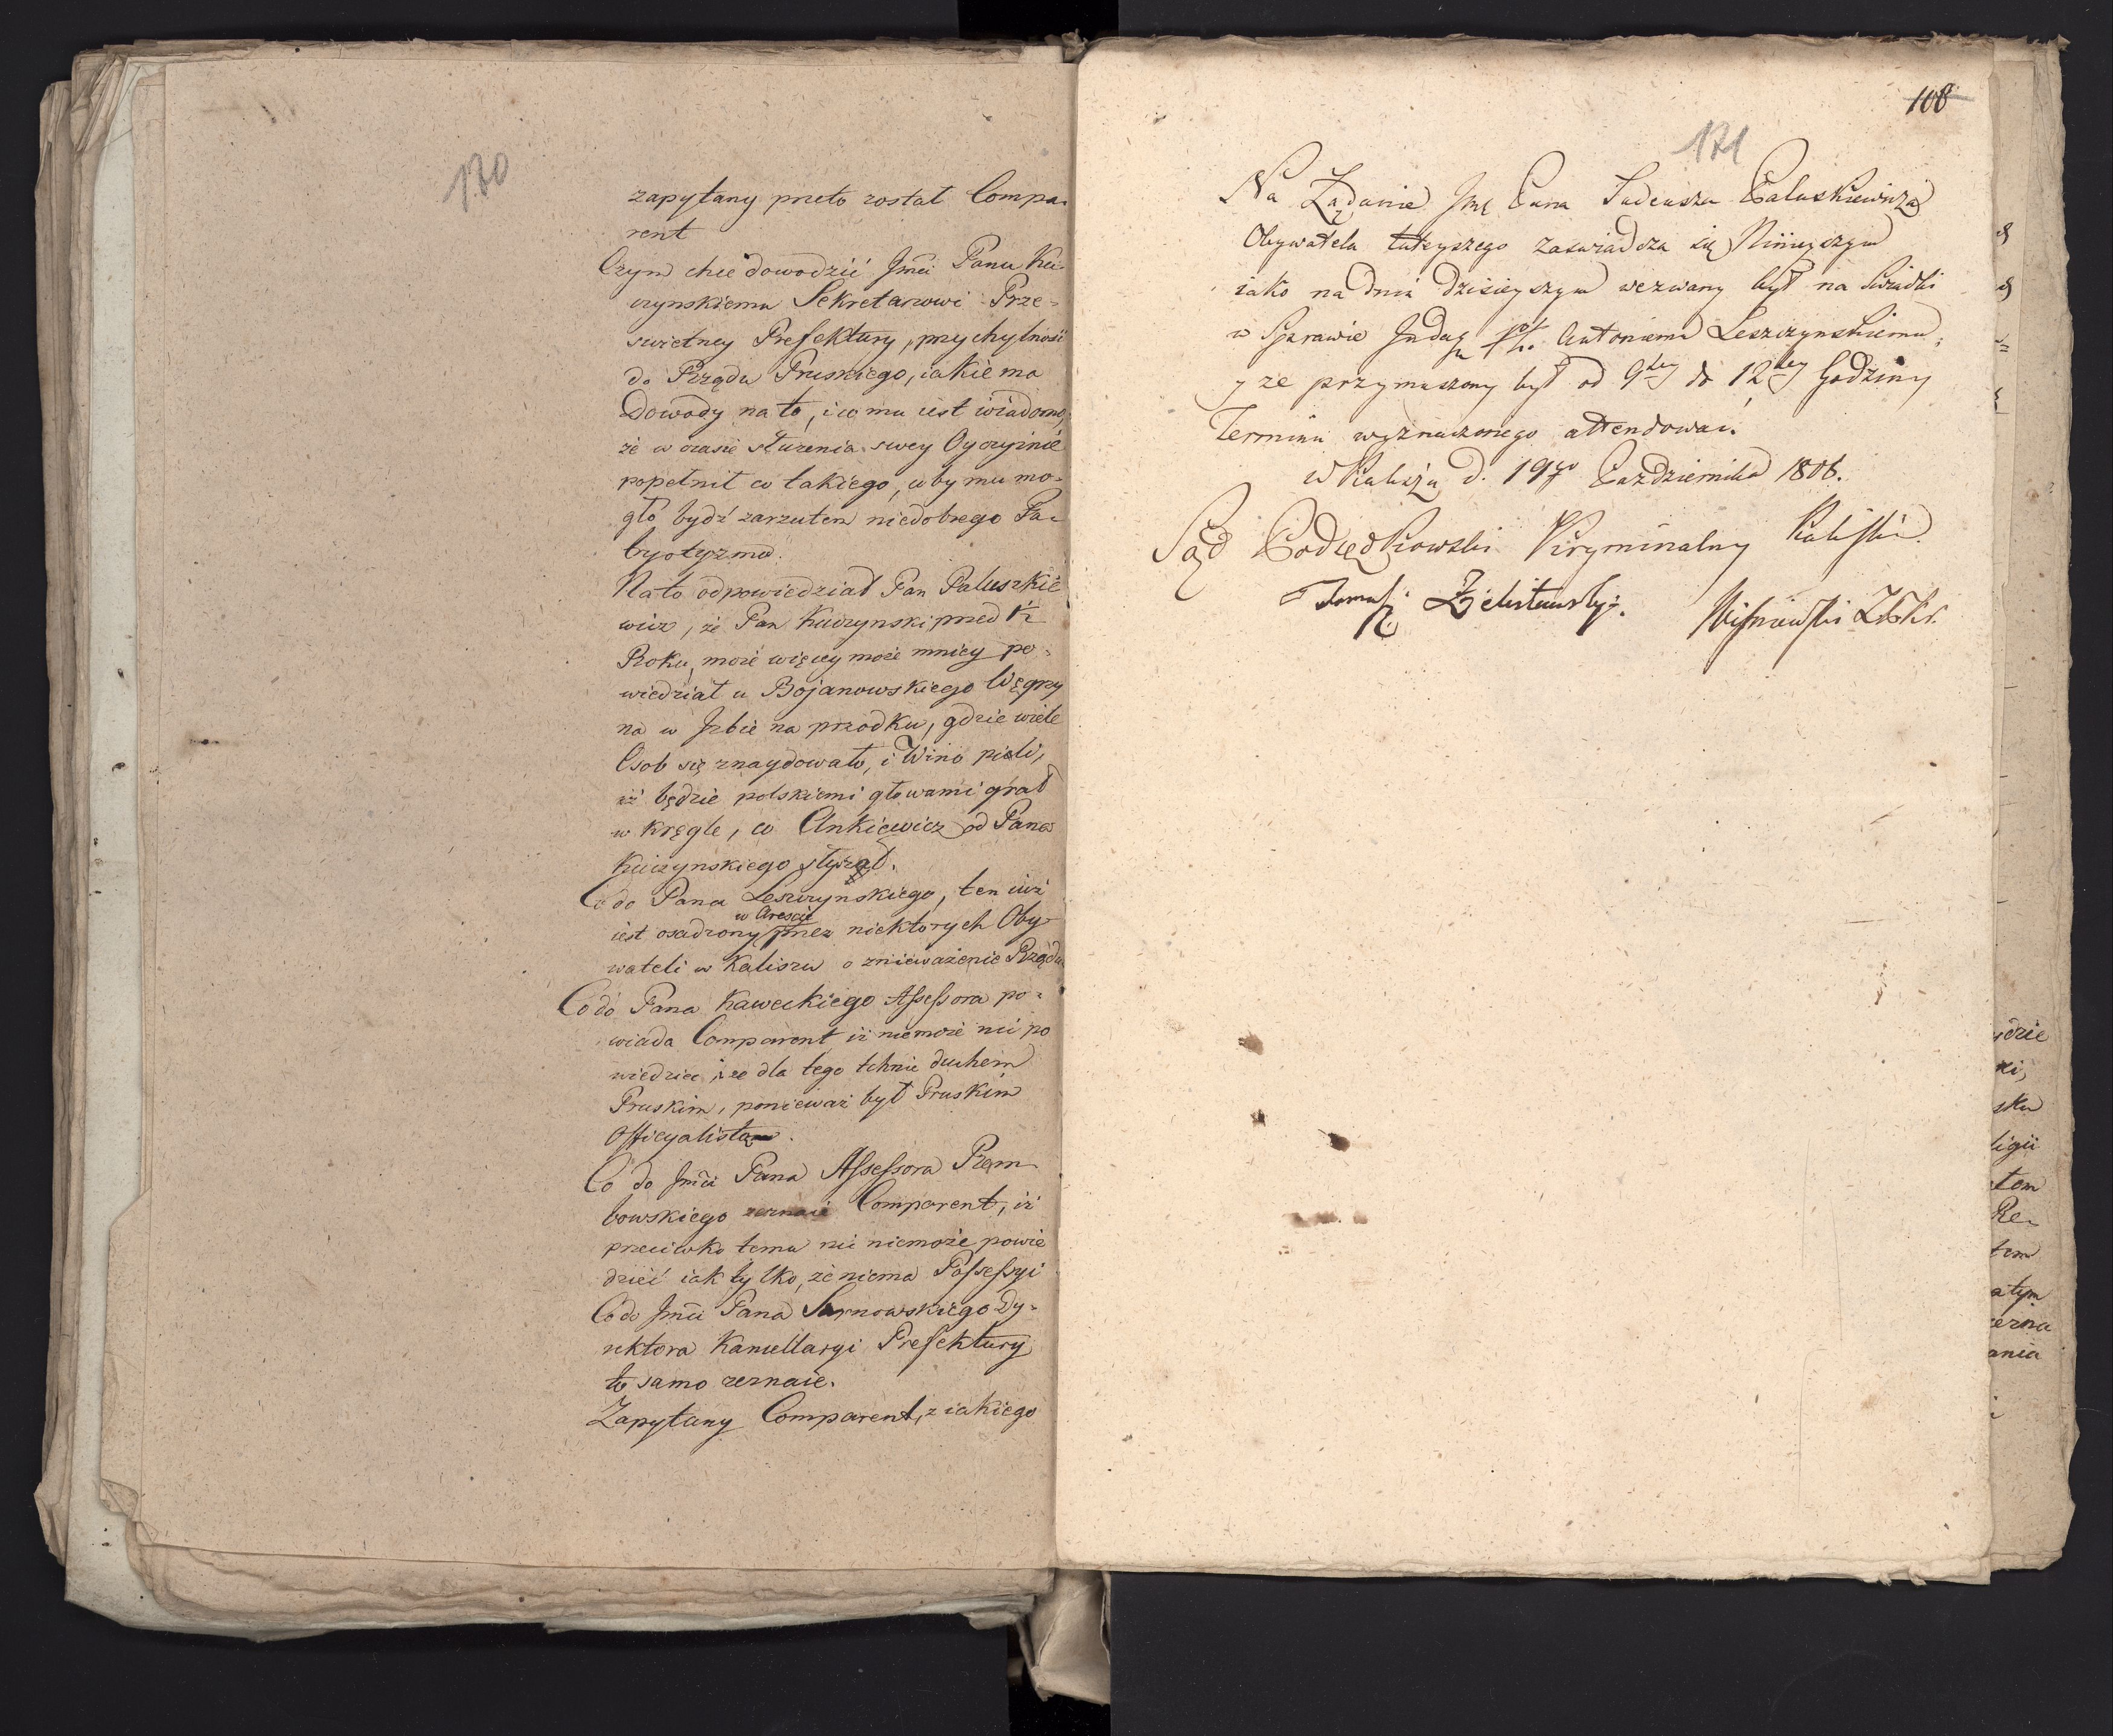 170
zapytany przeto został Compa=
rent
Czym chce dowodzić Jmci Panu Ku=
czynskiemu Sekretarzowi Prze=
swietney Prefektury, przychylność
do Rządu Pruskiego, iakie ma
Dowody na to, i co mu iest wiadomo,
że w czasie służenia swey Oyczyznie
popełnił co takiego, coby mu mo=
gło bydź zarzutem niedobrego Pa=
tryotyzmu.
Na to odpowiedział Pan Paluszkie
wicz, że Pan Kuczynski przed ½
Roku, może więcey może mniey po=
wiedział u Bojanowskiego Węgrzy
na w Izbie na przodku, gdzie wiele
Osob się znaydowało, i Wino pieli,
iż będzie polskiemi głowami grał
w kręgle, co Ankiewicz od Pana
Kuczynskiego słyszał.
Co do Pana Leszczynskiego, ten iuż
w Areszcie
iest osadzony przez niektorych Oby=
wateli w Kaliszu o znieważenie Rządu
Co do Pana Kaweckiego Assessora po=
wiada Comparent iż niemoże nic po
wiedziec, i że dla tego tchnie duchem
Pruskim, ponieważ był Pruskim
Officyalistą.
Co do Jmci Pana Assessora Rem=
bowskiego zeznaie Comparent, iż
przeciwko temu nic niemoże powie
dzieć iak tylko, że niema Possessyi
Co do Jmci Pana Sarnowskiego Dy=
rektora Kancellaryi Prefektury
to samo zeznaie.
Zapytany Comparent, z iakiego
108
171
Na Żądanie Jmć Pana Tadeusza Paluskiewicza
Obywatela tuteyszego zaswiadcza się Ninieyszym
iako na dniu dzisieyszym wezwany był na Swiadka
w Sprawie Antoniemu Leszczynskiemu,
y że przymuszony był od 9tey do 12tey Godziny
Terminu wyznaczonego attendować.
w Kaliszu d. 19go Pazdziernika 1806.
Sąd Podsędkowski Kryminalny Kaliski.
Tomasz